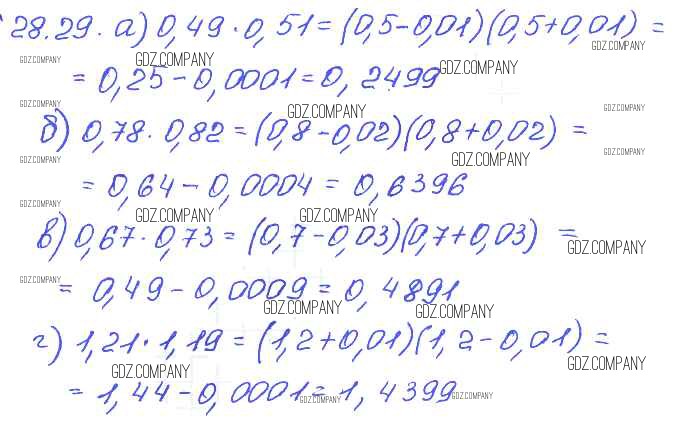 28.29. а) 0,49·0,51=(0,5-0,01)(0,5+0,01)=
GDZ.COMPANY GDZ.COMPANY GDZ.COMPANY
=0,25-0,0001=0,2499
GDZ.COMPANY
GDZ.COMPANY GDZ.COMPANY GDZ.COMPANY
б) 0,78·0,82=(0,8-0,02)(0,8+0,02)=
GDZ.COMPANY GDZ.COMPANY GDZ.COMPANY
=0,64-0,0004=0,6396
GDZ.COMPANY GDZ.COMPANY GDZ.COMPANY
в) 0,67·0,73=(0,7-0,03)(0,7+0,03)=
GDZ.COMPANY
=0,49-0,0009=0,4891
GDZ.COMPANY GDZ.COMPANY GDZ.COMPANY
г) 1,21·1,19=(1,2+0,01)(1,2-0,01)=
GDZ.COMPANY GDZ.COMPANY
=1,44-0,0001=1,4399
GDZ.COMPANY GDZ.COMPANY